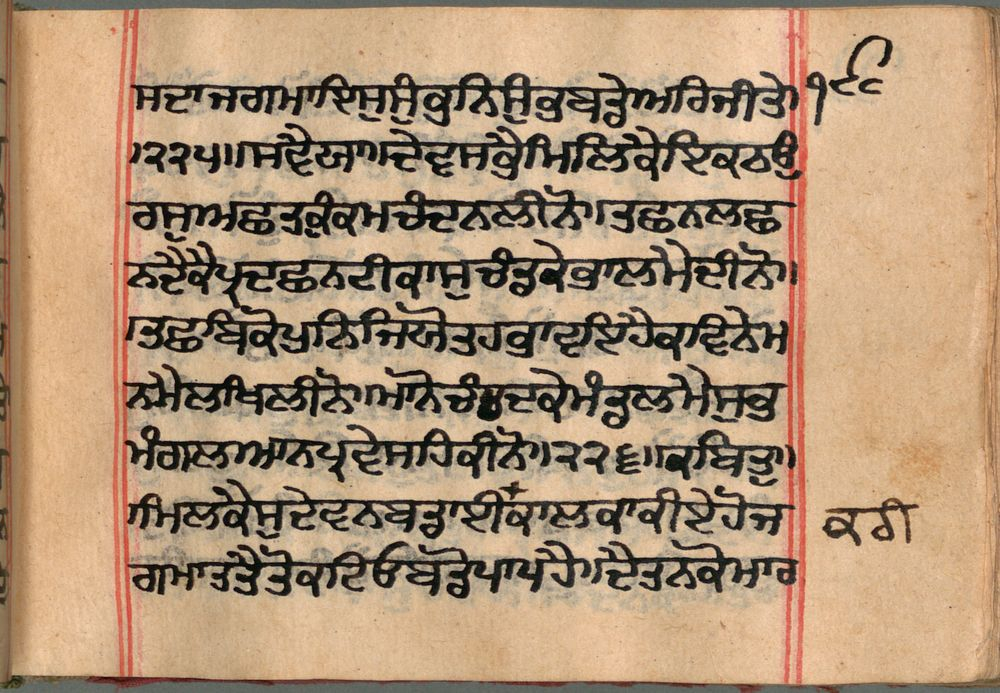 ਸਦਾਜਗਮਾਇਸੁਸੁੰਭੁਨਿਸੁੰਭੁਬਡੇਅਰਿਜੀਤੇ। ੧੯੯
।੨੨੫॥ਸਵੈਯਾ॥ਦੇਵਸਭੈਮਿਲਿਕੈਇਕਠਉ
ਰਸੁਅਛਤਕੁੰਕਮਚੰਦਨਲੀਨੋ।ਤਛਨਲਛ
ਨਦੈਕੈਪ੍ਰਦਛਨਟੀਕਾਸੁਚੰਡਕੇਭਾਲਮੈਦੀਨੋ।
।ਤਛਬਿਕੋਪੁਨਿਜਿਯੋਤਹਭਾਵਇਹੈਕਵਿਨੇਮ
ਨਮੈਲਖਿਲੀਨੋ।ਮਾਨੋਚੰਦਕੇਮੰਡਲਮੈਸੁਭ
ਮੰਗਲਆਨਪ੍ਰਵੇਸਹਿਕੀਨੋ।੨੨੬॥ਕਬਿਤੁ।
।ਮਿਲਕੈਸੁਦੇਵਨਬਡਾਈਕਾਲਕਾਕੀਏਹੋਜ ਕਰੀ
ਗਮਾਤਤੈਤੋਕਟਿਓਬਡੋਪਾਪਹੈ।ਦੈਤਨਕੇਮਾਰ